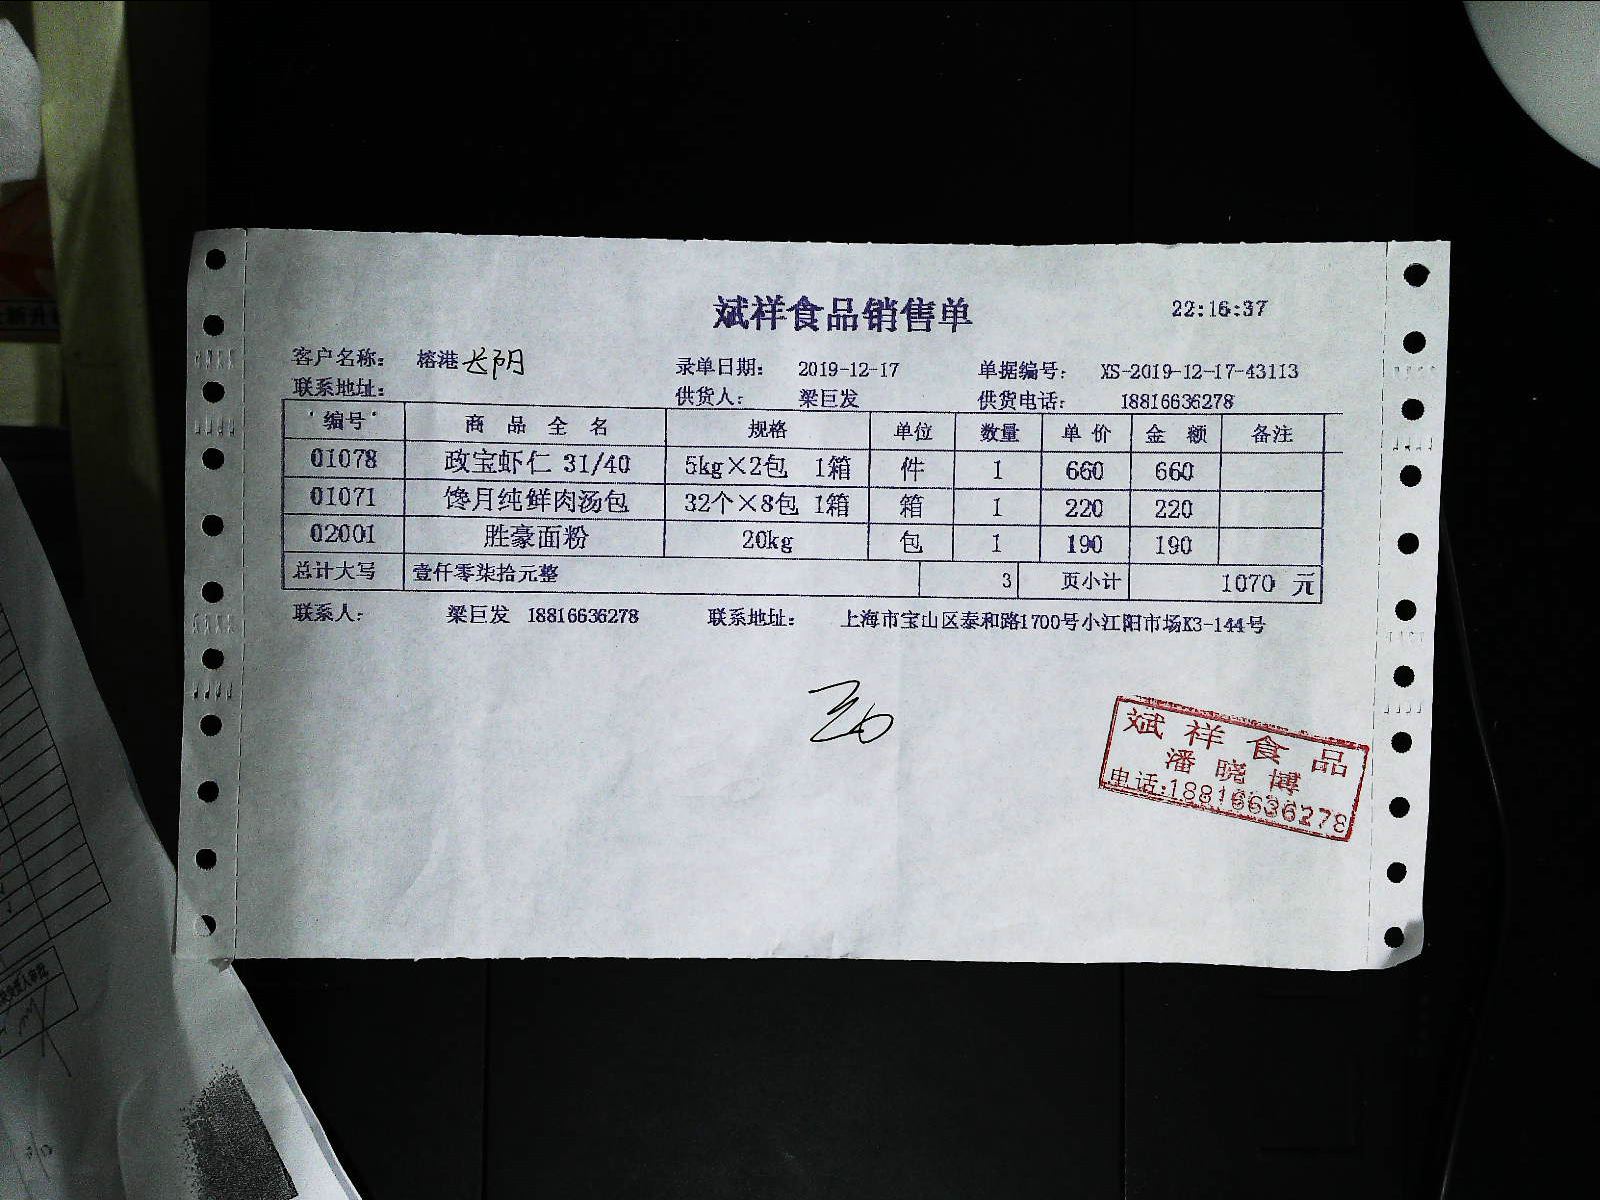 斌祥食品销售单 22:16:37
客户名称： 榕港 长阴 录单日期： 2019-12-17 单据编号： XS-2019-12-17-43113
联系地址： 供货人： 梁巨发 供货电话： 18816636278
编号 商品全名 规格 单位 数量 单价 金额 备注
01078 政宝虾仁 31/40 5kg×2包 1箱 件 1 660 660
01071 馋月纯鲜肉汤包 32个×8包 1箱 箱 1 220 220
02001 胜豪面粉 20kg 包 1 190 190
总计大写 壹仟零柒拾元整 3 页小计 1070 元
联系人： 梁巨发 18816636278 联系地址： 上海市宝山区泰和路1700号小江阳市场K3-144号
斌祥食品
潘晓博
电话:18816636278